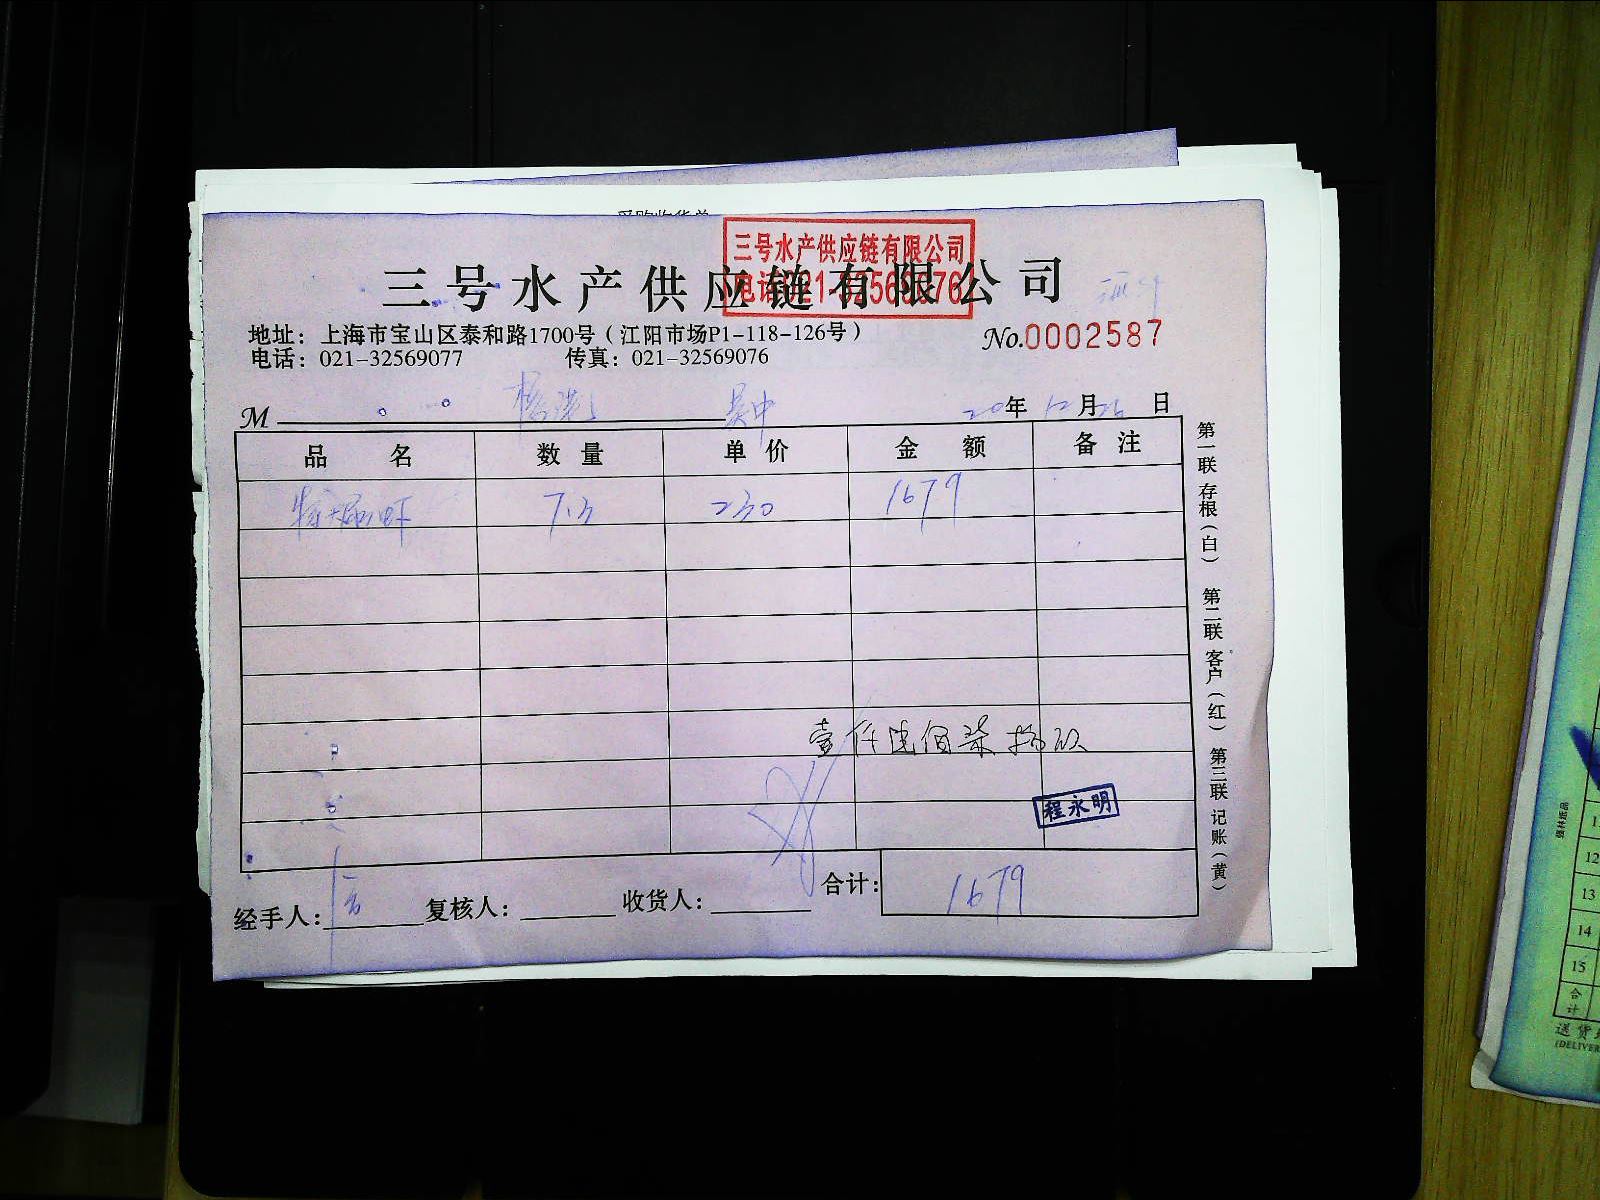 三号水产供应链有限公司
三号水产供应链有限公司
地址：上海市宝山区泰和路1700号（江阳市场P1-118-126号）
电话：021-32569077 传真：021-32569076
No.0002587
M 吴中 20年12月26日
品名 数量 单价 金额 备注
特大 虾 7.3 230 1679
壹仟陆佰柒拾玖
程永明
经手人： 复核人： 收货人： 合计： 1679
第一联 存根（白） 第二联 客户（红） 第三联 记账（黄）
12
13
14
15
合计